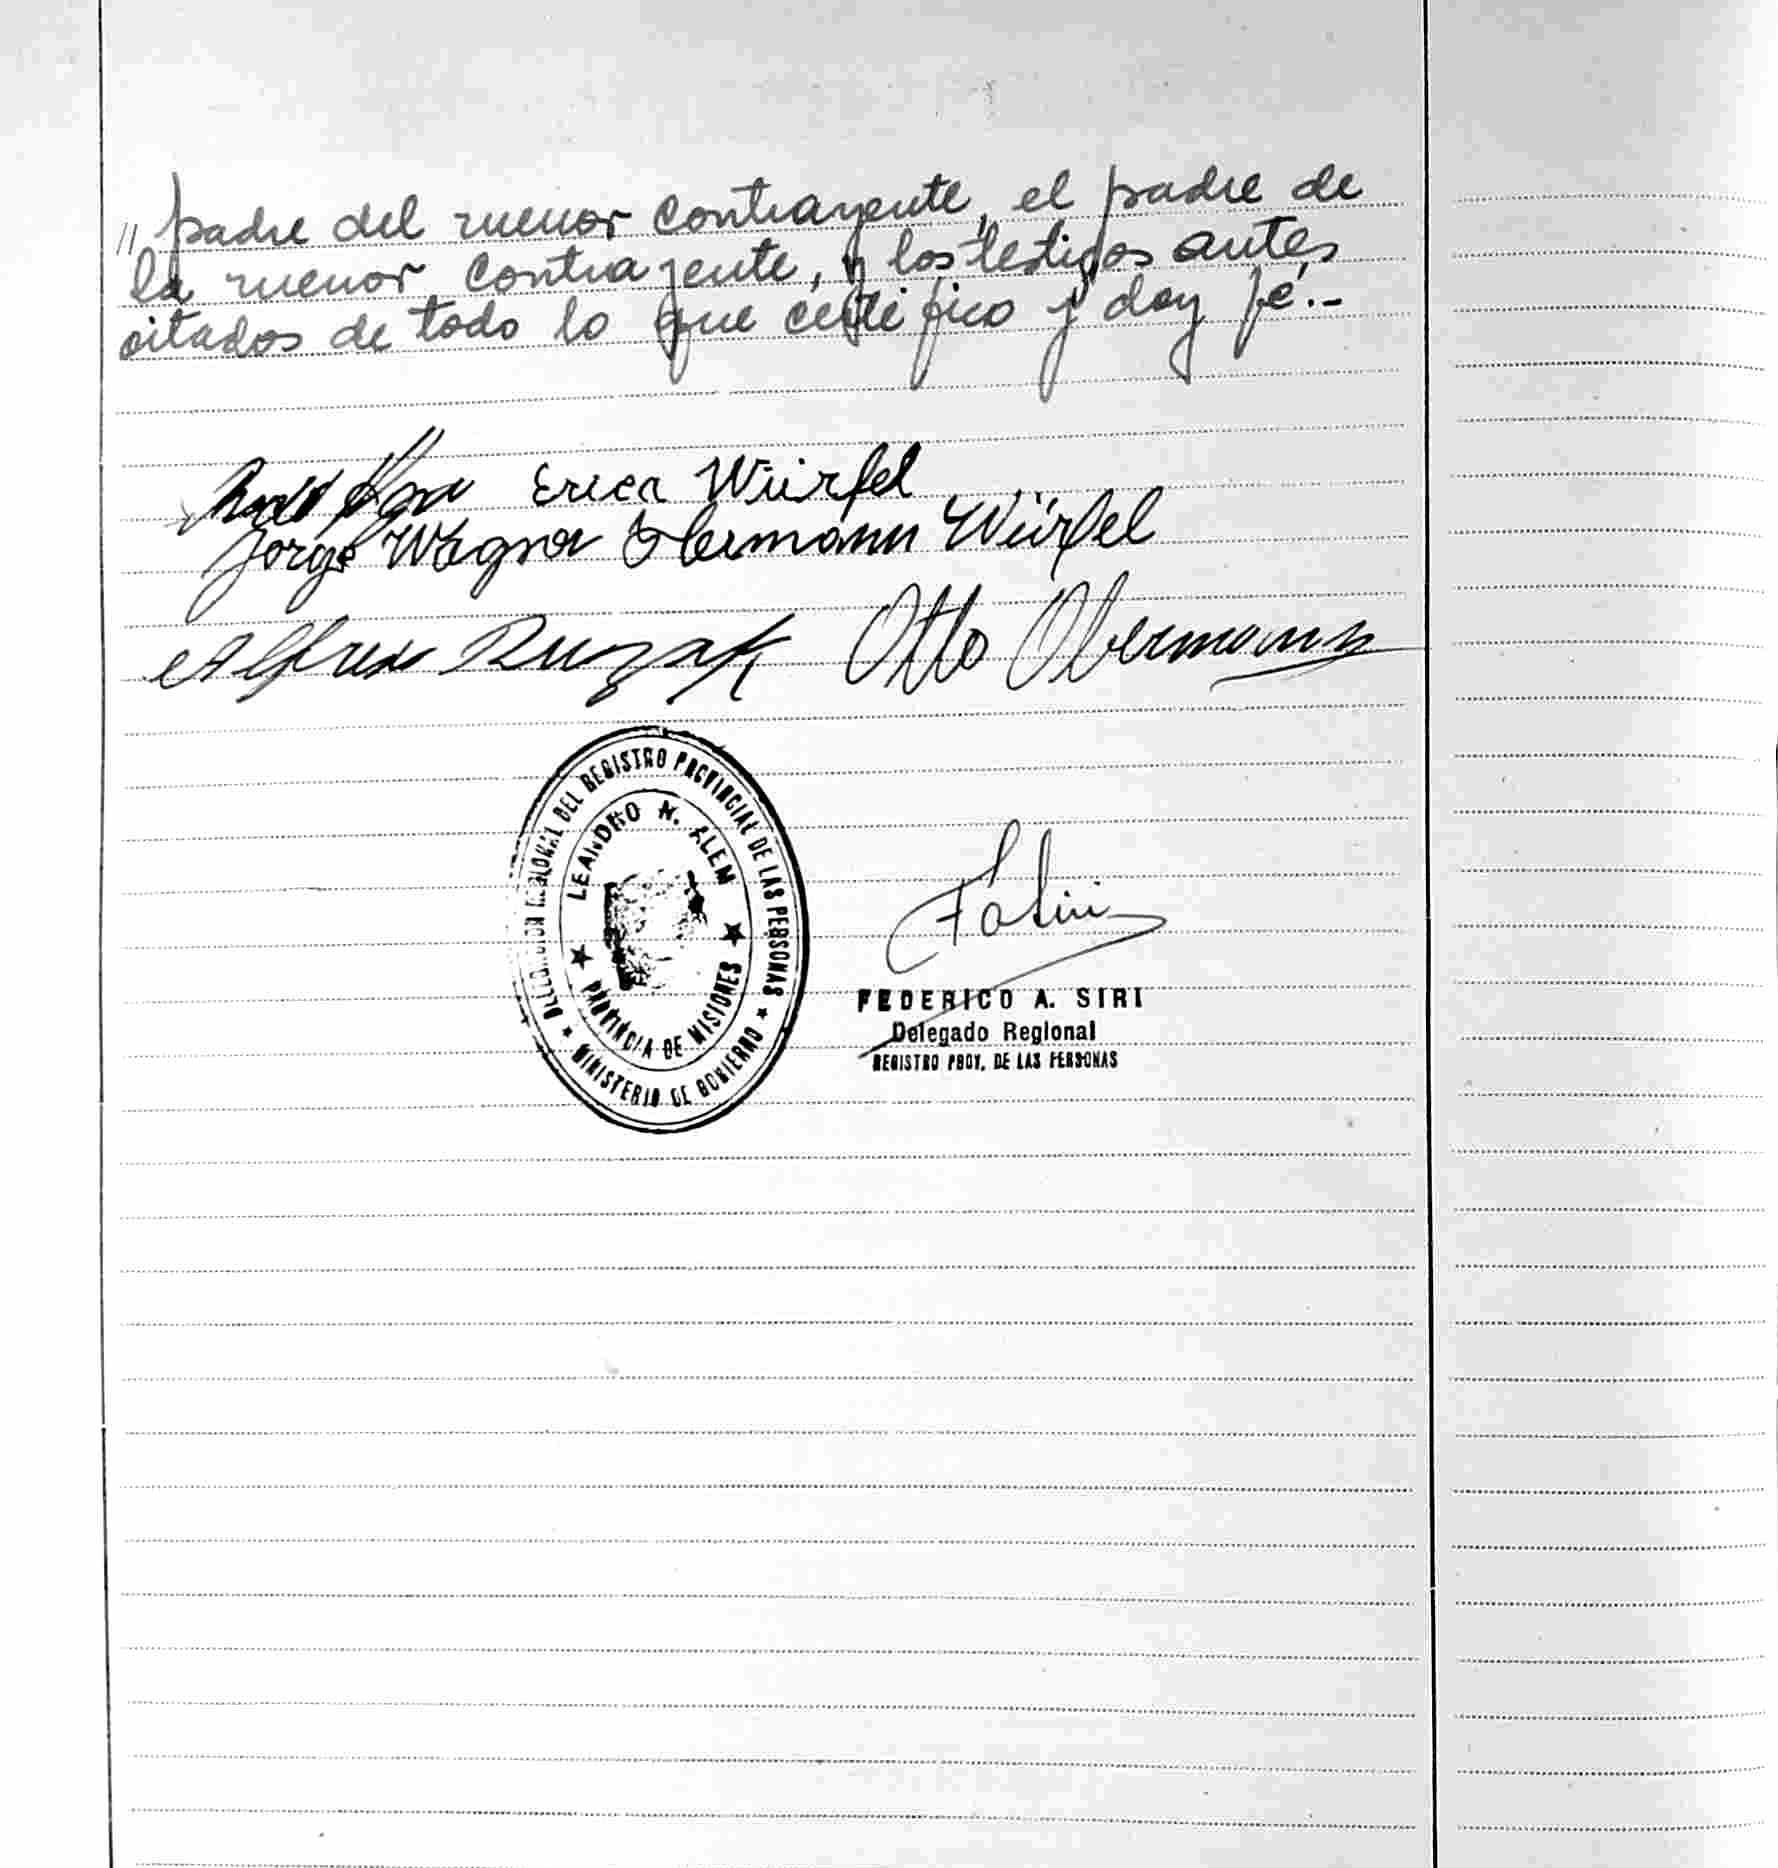 // padre del menor contrayente, el padre de
la menor contrayente, y los testigos antes
citados de todo lo que certifico y doy fé.-
Erica Würfel
Jorge Wagner Hermann Würfel
Alfredo Ruzak Otto Obermann
DELEGACION REGIONAL DEL REGISTRO PROVINCIAL DE LAS PERSONAS
LEANDRO N. ALEM
PROVINCIA DE MISIONES
★ MINISTERIO DE GOBIERNO ★
FEDERICO A. SIRI
Delegado Regional
REGISTRO PROV. DE LAS PERSONAS